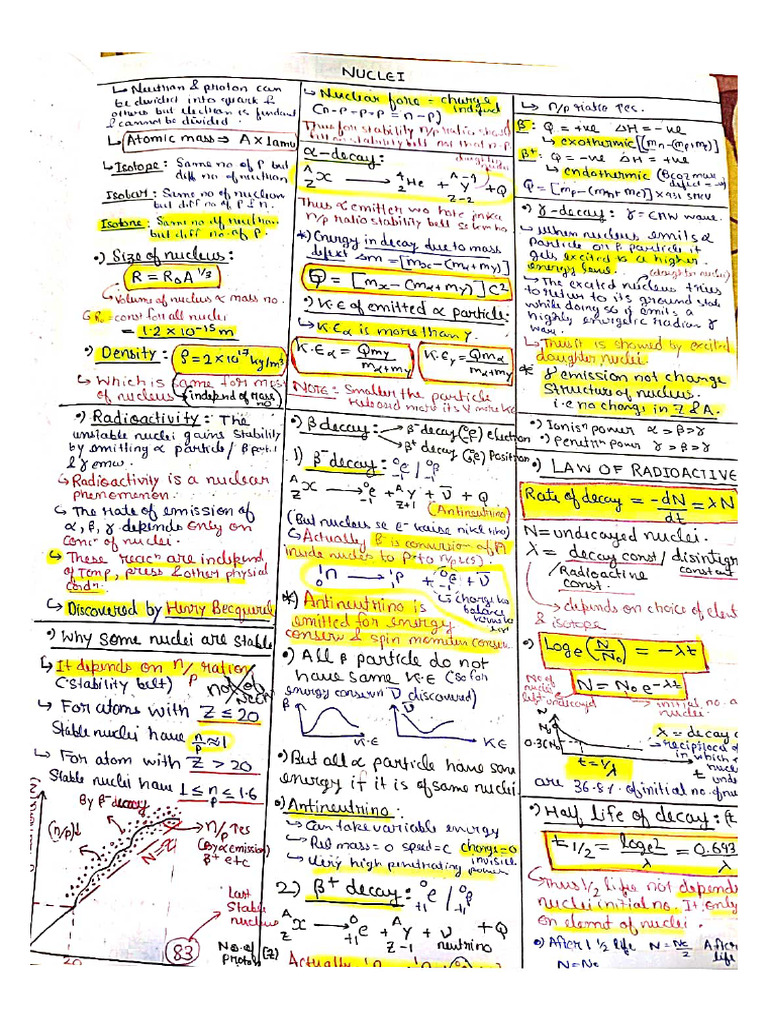 NUCLEI
↳ Neutron & proton can
be divided into quark &
others but electron is fundam
& cannot be divided.
↳ Atomic mass ⇒ A x 1amu
↳ Isotope: Same no of P but
diff no of neutron.
Isobar: Same no of nucleon
but diff no. of P & n.
Isotone: Same no of neutron
but diff no. of P.
•) Size of nucleus:
R = R₀A^1/3
↳ Volume of nucleus ∝ mass no.
R₀ = const for all nuclei
= 1.2 x 10^-15 m
•) Density: ρ = 2 x 10^17 kg/m³
↳ Which is same for most
of nucleus (independ of mass no)
•) Radioactivity: The
unstable nuclei gains stability
by emitting α particle / β parti
& γ emw.
↳ Radioactivity is a nuclear
phenomenon.
↳ The rate of emission of
α, β, γ depends only on
conc^n of nuclei.
↳ These reac^n are independ
of Temp, press & other physical
cond^n.
↳ Discovered by Henry Becquerel
•) Why some nuclei are stable
↳ It depends on n/p ration
(stability belt)
↳ For atoms with Z ≤ 20
Stable nuclei have n/p ≈ 1
↳ For atom with Z > 20
Stable nuclei have 1 ≤ n/p ≤ 1.6
By β⁻ decay
(n/p)↓
n/p ↑es
(By α emission)
β⁺ etc
N=Z
Last
Stable
nucleus
83
20
No. of
proton (Z)
↳ Nuclear force = charge
independ
(n-P = P-P = n-P)
Thus for stability n/p ratio should
α-decay:
A Z X → 4 2 He + A-4 Z-2 Y + Q
daughter
Thus α emitter wo hote jinka
n/p ratio stability belt se kam ho
*) Energy in decay due to mass
defect Δm = [mx-(mα+my)]
Q = [mx-(mα+my)]c²
•) K.E of emitted α particle:
↳ K.Eα is more than Y.
K.Eα = Qmy / mα+my
K.Ey = Qmα / mα+my
NOTE: Smaller the particle
released more its V more K.E
•) β decay: → β⁻ decay (0 -1 e) electron
→ β⁺ decay (0 +1 e) Positron
1) β⁻ decay: 0 -1 e | 0 -1 β
A Z X → 0 -1 e + A Z+1 Y + ν̄ + Q
(Antineutrino)
(But nucleus se e⁻ kaise nikl)
↳ Actually β is conversion of n
inside nucleus to P
1 0 n → 1 1 P + 0 -1 e + ν̄
↳ charge ko
balance
*) Antineutrino is
emitted for energy
conserv & spin momentum conserv
•) All β particle do not
have same K.E (so for
energy conserv ν̄ discovered)
β
K.E
ν̄
K.E
•) But all α particle have same
energy if it is of same nuclei
•) Antineutrino:
↳ Can take variable energy
↳ Rel mass = 0 speed = c charge = 0
↳ Very high penetrating power
invisible
2) β⁺ decay: 0 +1 e | 0 +1 β
A Z X → 0 +1 e + A Z-1 Y + ν + Q
neutrino
Actually
↳ n/p ratio ↑es.
β⁻: Q = +ve ΔH = -ve
↳ exothermic
β⁺: Q = -ve ΔH = +ve
↳ endothermic
Q = [mp-(mn+me)] x 931 MeV
•) γ-decay: γ = EM wave.
↳ When nucleus emits α
particle or β particle it
gets excited to a higher
energy level.
(daughter nuclei)
↳ The excited nucleus tries
to return to its ground state
while doing so it emits a
highly energetic radian γ
wave.
↳ Thus it is showed by excited
daughter nuclei.
* γ emission not change
structure of nucleus.
i.e no change in Z & A.
•) Ionis^n power α > β > γ
•) Penetr^n power γ > β > α
•) LAW OF RADIOACTIVE
Rate of decay = -dN/dt = λN
N = undecayed nuclei.
λ = decay const / disintegr
constant
/ Radioactive
const.
↳ depends on choice of elent
& isotope
•) Log e (N/N₀) = -λt
N = N₀ e^-λt
No of
nuclei
left undecayed
initial no. of
nuclei.
N₀
N
t = 1/λ
λ = decay c
→ reciprocal of
in which
nucl
t und
are 36.8% of initial no. of nuc
•) Half life of decay: (t
t1/2 = loge2/λ = 0.693/λ
↳ Thus 1/2 life not depends
nuclei initial no. It only
on elemnt of nuclei.
•) After 1 1/2 life N = N₀/2 After
life